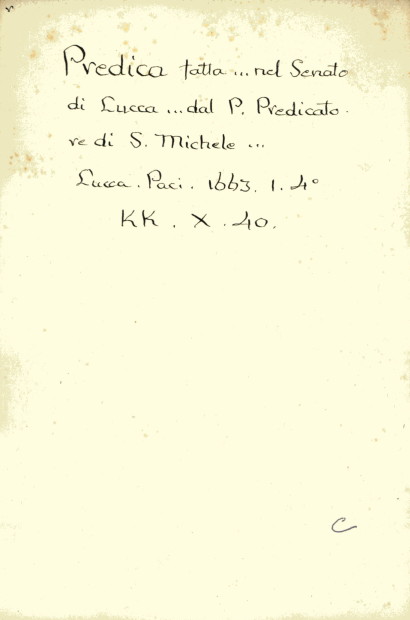 Predica fatta ... nel Senato
di Lucca ... dal P. Predicato-
re di S. Michele ...
Lucca. Paci. 1663. 1. 4°
KK. X. 40.
C